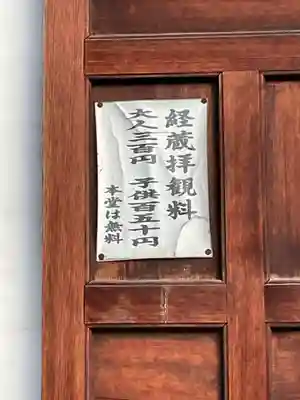 経蔵拝観料
大人三百円 子供百五十円
本堂は無料